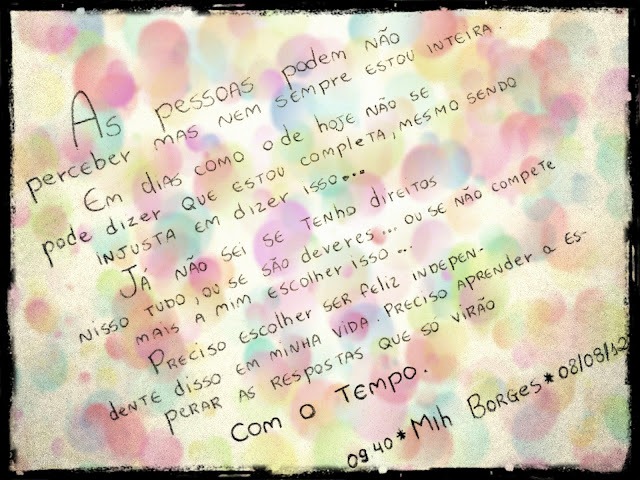 As pessoas podem não
perceber mas nem sempre estou inteira.
Em dias como o de hoje não se
pode dizer que estou completa, mesmo sendo
injusta em dizer isso...
Já não sei se tenho direitos
nisso tudo, ou se são deveres... ou se não compete
mais a mim escolher isso...
Preciso escolher ser feliz indepen-
dente disso em minha vida. Preciso aprender a es-
perar as respostas que so virão
com o tempo.
09 40 * Mih Borges * 08/08/12